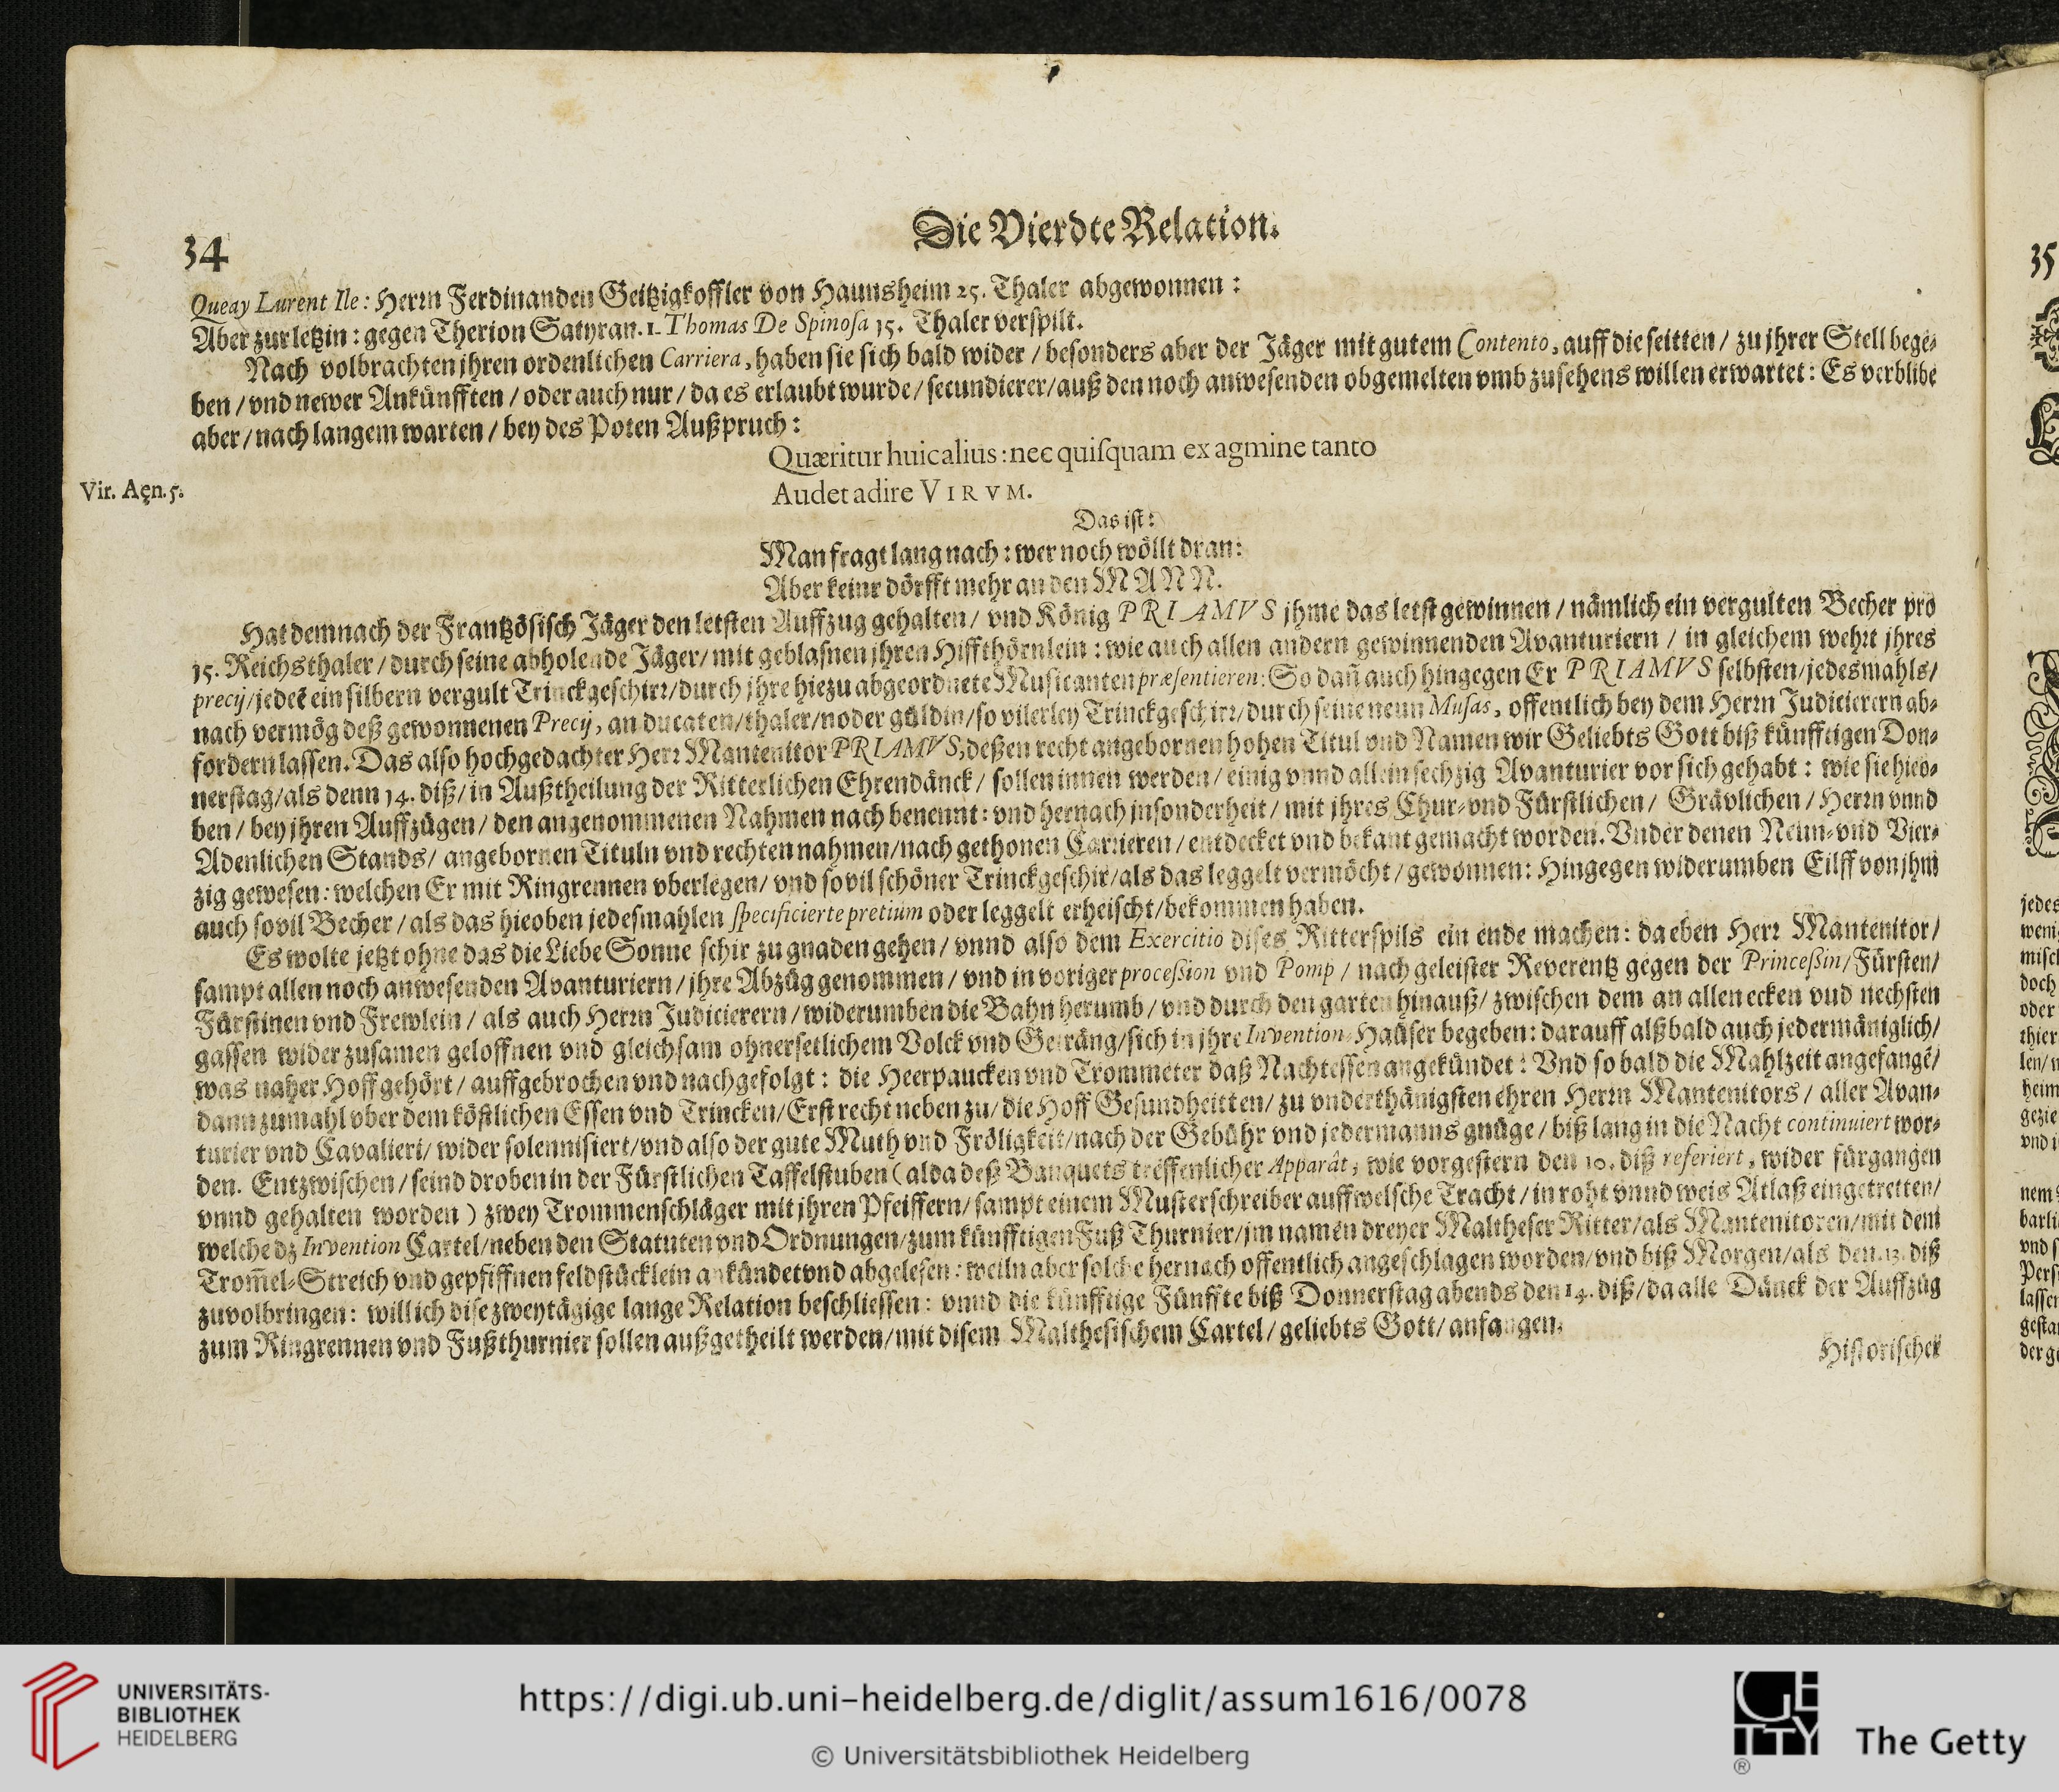 34
Die Vierdte Relation.
Queay Lurent Ile: Herrn Ferdinanden Geitzigkoffler von Haunsheim 25. Thaler abgewonnen:
Aber zur letzin: gegen Therion Satyran. 1. Thomas De Spinosa 15. Thaler verspilt.
Nach volbrachten jhren ordenlichen Carriera, haben sie sich bald wider / besonders aber der Jäger mit gutem Contento, auff die seitten / zu jhrer Stell bege-
ben / vnd newer Ankünfften / oder auch nur / da es erlaubt wurde / secundierer / auß den noch anwesenden obgemelten vmb zusehens willen erwartet: Es verblibe
aber / nach langem warten / bey des Poten Außpruch:
Quæritur huic alius: nec quisquam ex agmine tanto
Vir. Aęn. 5.
Audet adire VIRVM.
Das ist:
Man fragt lang nach: wer noch wöllt dran:
Aber keinr dörfft mehr an den MANN.
Hat demnach der Frantzösisch Jäger den letsten Auffzug gehalten / vnd König PRIAMVS jhme das letst gewinnen / nämlich ein vergulten Becher pro
15. Reichsthaler / durch seine abholende Jäger / mit geblasnen jhren Hiffthörnlein: wie auch allen andern gewinnenden Avanturiern / in gleichem wehrt jhres
precij / jedeē ein silbern vergult Trinckgeschirr / durch jhre hiezu abgeordnete Musicanten præsentieren: So dañ auch hingegen Er PRIAMVS selbsten / jedesmahls /
nach vermög deß gewonnenen Precij, an ducaten / thaler / noder güldin / so vilerley Trinckgeschirr / durch seine neun Musas, offentlich bey dem Herrn Judicierern ab-
fordern lassen. Das also hochgedachter Herr Mantenitor PRIAMVS, deßen recht angebornen hohen Titul vnd Namen wir Geliebts Gott biß künfftigen Don-
nerstag / als denn 14. diß / in Außtheilung der Ritterlichen Ehrendänck / sollen innen werden / einig vnnd allein sechzig Avanturier vor sich gehabt: wie sie hieo-
ben / bey jhren Auffzügen / den angenommenen Nahmen nach benennt: vnd hernach jnsonderheit / mit jhres Chur- vnd Fürstlichen / Grävlichen / Herrn vnnd
Adenlichen Stands / angebornen Tituln vnd rechten nahmen / nach gethonen Carrieren / entdecket vnd bekant gemacht worden. Vnder denen Neun- vnd Vier-
zig gewesen: welchen Er mit Ringrennen vberlegen / vnd sovil schöner Trinckgeschir / als das leggelt vermöcht / gewonnen: Hingegen widerumben Eilff von jhm
auch sovil Becher / als das hieoben jedesmahlen specificierte pretium oder leggelt erheischt / bekommen haben.
Es wolte jetzt ohne das die Liebe Sonne schir zu gnaden gehen / vnnd also dem Exercitio dises Ritterspils ein ende machen: da eben Herr Mantenitor /
sampt allen noch anwesenden Avanturiern / jhre Abzüg genommen / vnd in voriger procession vnd Pomp / nach geleister Reverentz gegen der Princeßin / Fürsten /
Fürstinen vnd Frewlein / als auch Herrn Judicierern / widerumben die Bahn herumb / vnd durch den garten hinauß / zwischen dem an allen ecken vnd nechsten
gassen wider zusamen geloffnen vnd gleichsam ohnersetlichem Volck vnd Geträng / sich in jhre Invention-Haüser begeben: darauff alßbald auch jedermäniglich /
was naher Hoff gehört / auffgebrochen vnd nachgefolgt: die Heerpaucken vnd Trommeter daß Nachtessen angekündet: Vnd so bald die Mahlzeit angefangē /
dann zumahl vber dem köstlichen Essen vnd Trincken / Erst recht neben zu / die Hoff Gesundheitten / zu vnderthänigsten ehren Herrn Mantenitors / aller Avan-
turier vnd Cavalieri / wider solennisiert / vnd also der gute Muth vnd Fröligkeit / nach der Gebühr vnd jedermanns gnüge / biß lang in die Nacht continuiert wor-
den. Entzwischen / seind droben in der Fürstlichen Taffelstuben (alda deß Banquets treffenlicher Apparât, wie vorgestern den 10. diß referiert, wider fürgangen
vnnd gehalten worden) zwey Trommenschläger mit jhren Pfeiffern / sampt einem Musterschreiber auff welsche Tracht / in roht vnnd weis Atlaß eingetretten /
welche dz Invention Cartel / neben den Statuten vnd Ordnungen / zum künfftigen Fuß Thurnier / jm namen dreyer Maltheser Ritter / als Mantenitoren / mit dem
Trom̃el-Streich vnd gepfiffnen feldstücklein ankündet vnd abgelesen: weiln aber solche hernach offentlich angeschlagen worden / vnd biß Morgen / als den. 13. diß
zuvolbringen: will ich dise zweytägige lange Relation beschliessen: vnnd die künfftige Fünffte biß Donnerstag abends den 14. diß / da alle Dänck der Auffzüg
zum Ringrennen vnd Fußthurnier sollen außgetheilt werden / mit disem Malthesischem Cartel / geliebts Gott / anfangen.
Historischer
35
jedes
weni
misch
doch
oder
thier
len / n
heim
gezie
vnd i
nem
barli
vnd s
Pers
lassen
gesta
der ge
UNIVERSITÄTS-
BIBLIOTHEK
HEIDELBERG
https://digi.ub.uni-heidelberg.de/diglit/assum1616/0078
© Universitätsbibliothek Heidelberg
GETTY
®
The Getty